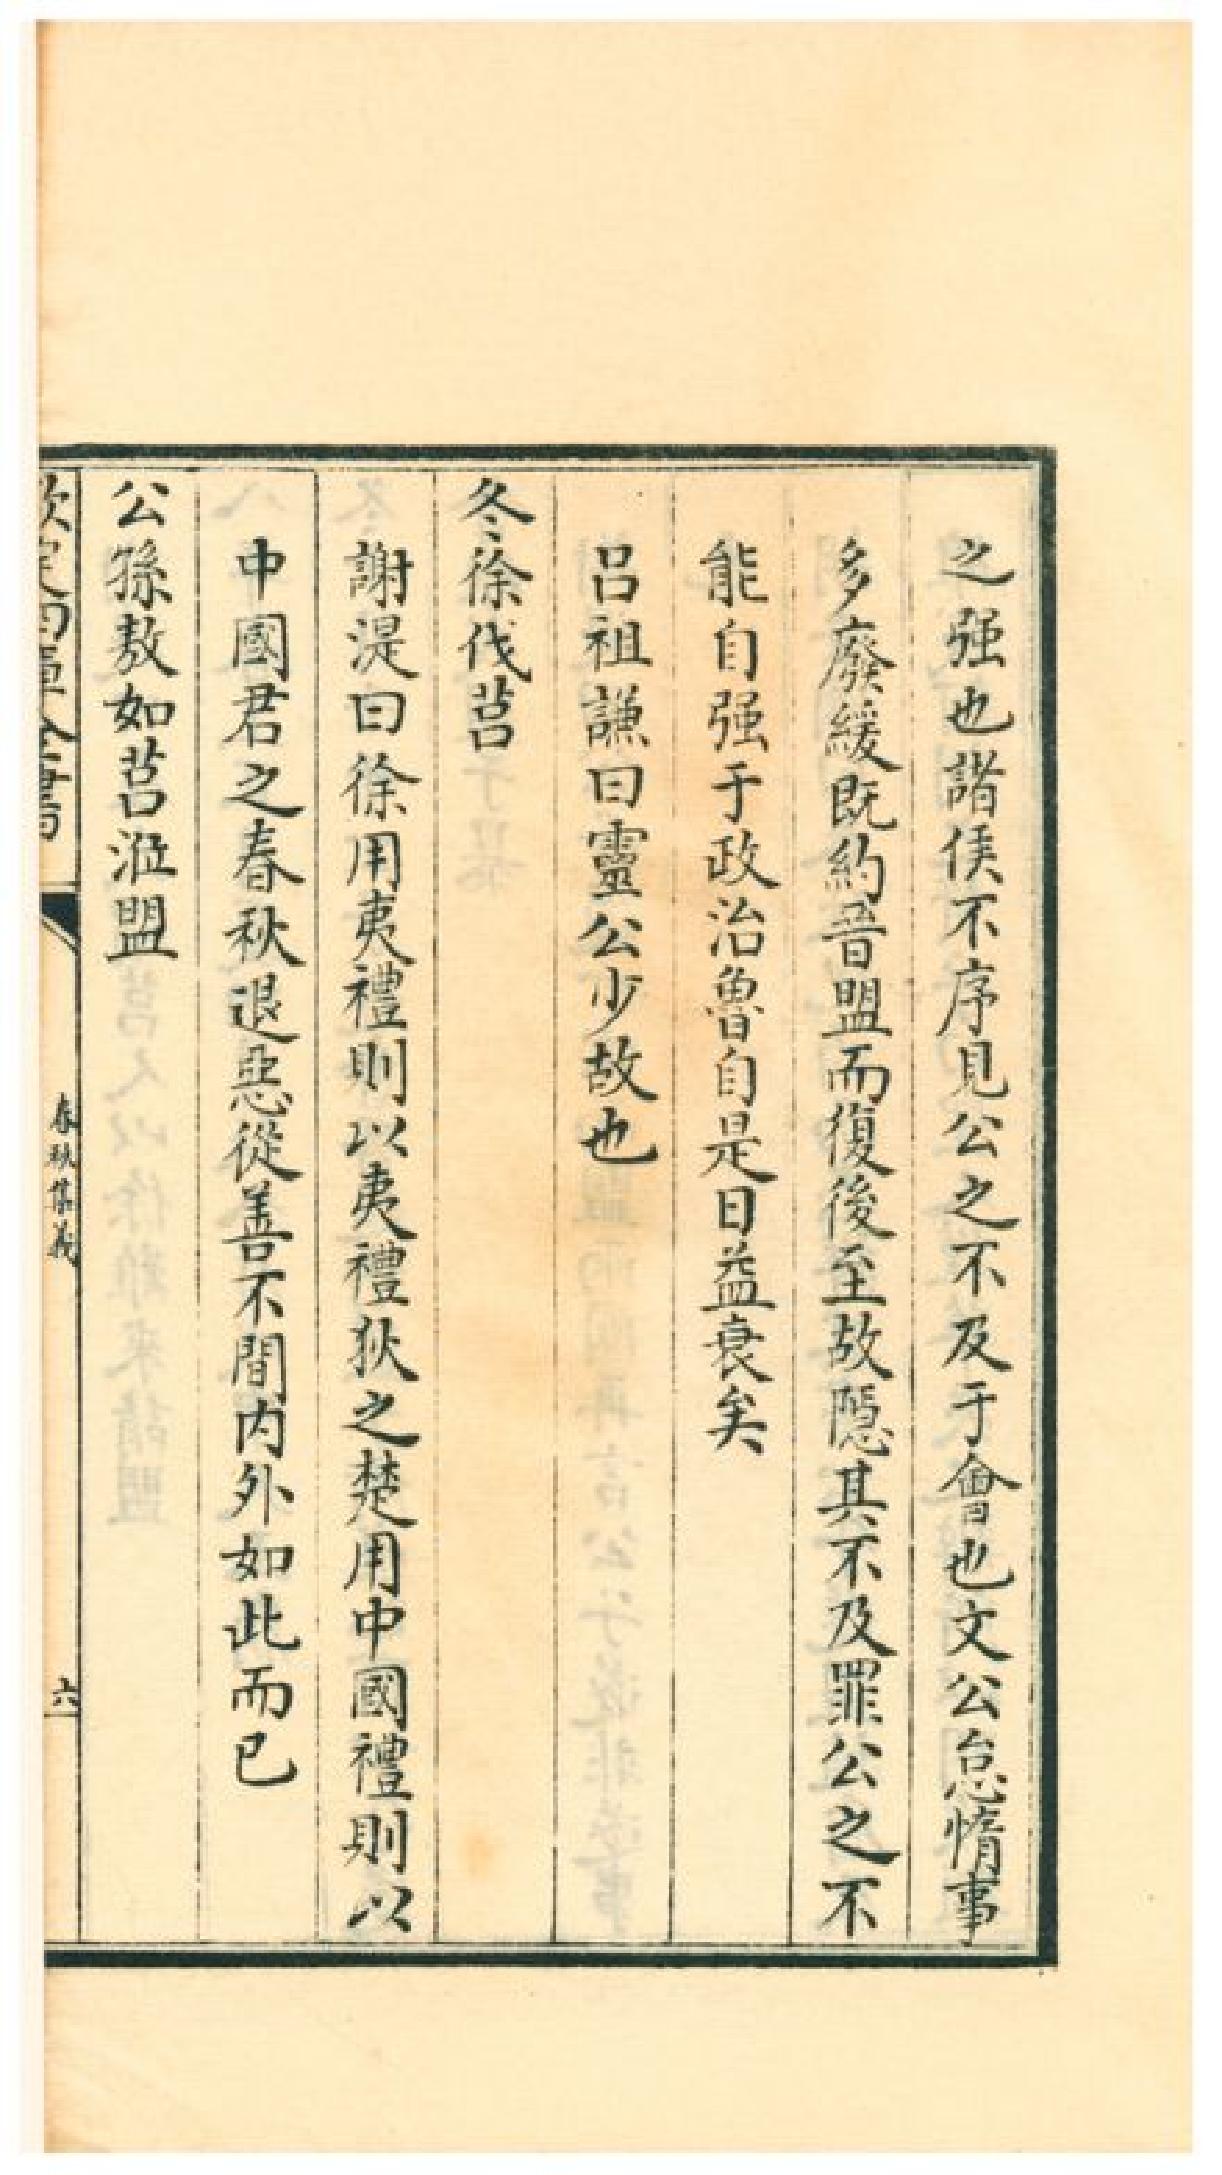 之强也諸侯不序見公之不及于會也文公怠惰事
多廢緩既約晉盟而復後至故隱其不及罪公之不
能自强于政治魯自是日益衰矣
吕祖謙曰靈公少故也
冬徐伐莒
謝湜曰徐用夷禮則以夷禮狄之楚用中國禮則以
中國君之春秋退惡從善不間内外如此而已
公孫敖如莒涖盟
欽定四庫全書
春秋集義
六